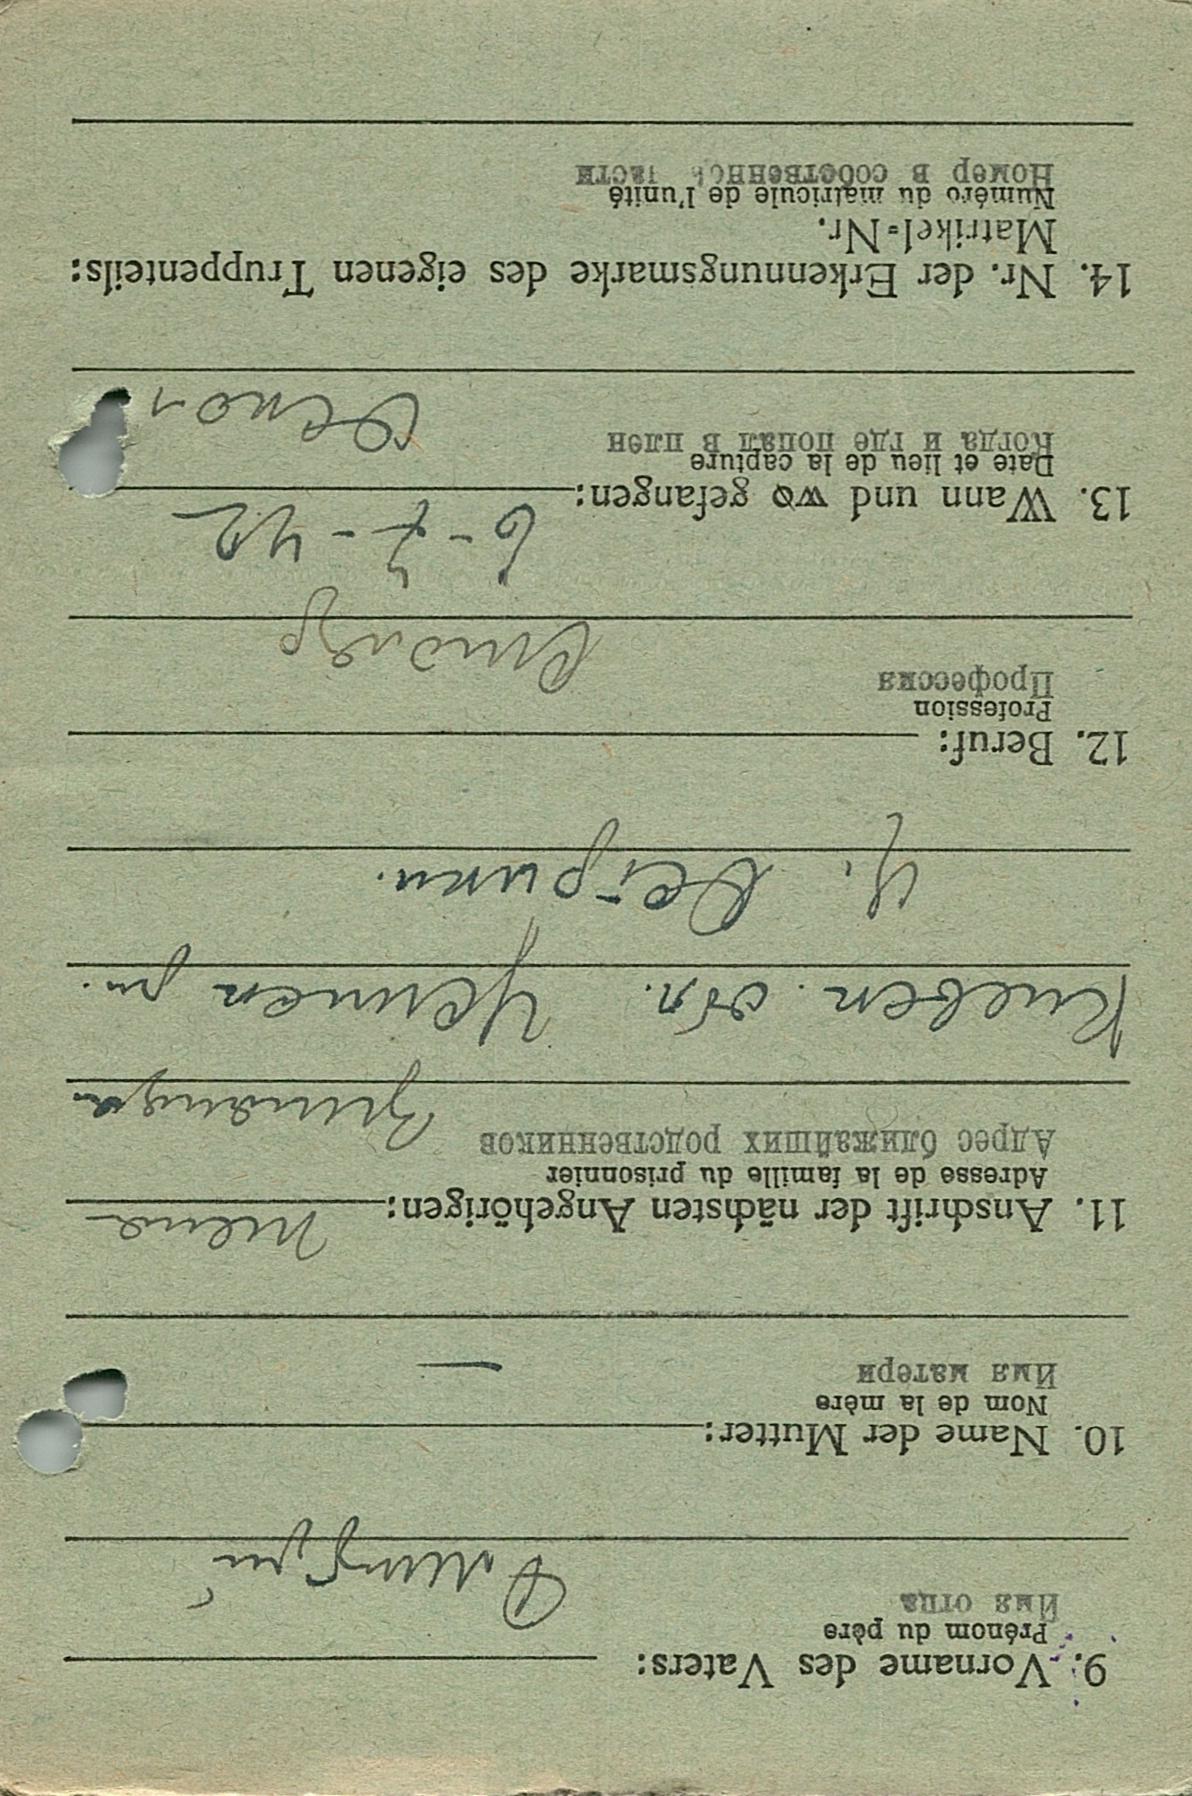 9. Vorname des Vaters:
Prénom du père
Имя отца
Дмитрий
10. Name der Mutter:
Nom de la mère
Имя матери
—
11. Anschrift der nächsten Angehörigen:
Adresse de la famille du prisonnier
Адрес ближайших родственников
жена
Зинаида
Киевск. обл.
с.
12. Beruf:
Profession
Профессия
столяр
13. Wann und wo gefangen:
Date et lieu de la capture
Когда и где попал в плен
6-7-42
14. Nr. der Erkennungsmarke des eigenen Truppenteils:
Matrikel-Nr.
Numéro du matricule de l'unité
Номер в собственной части